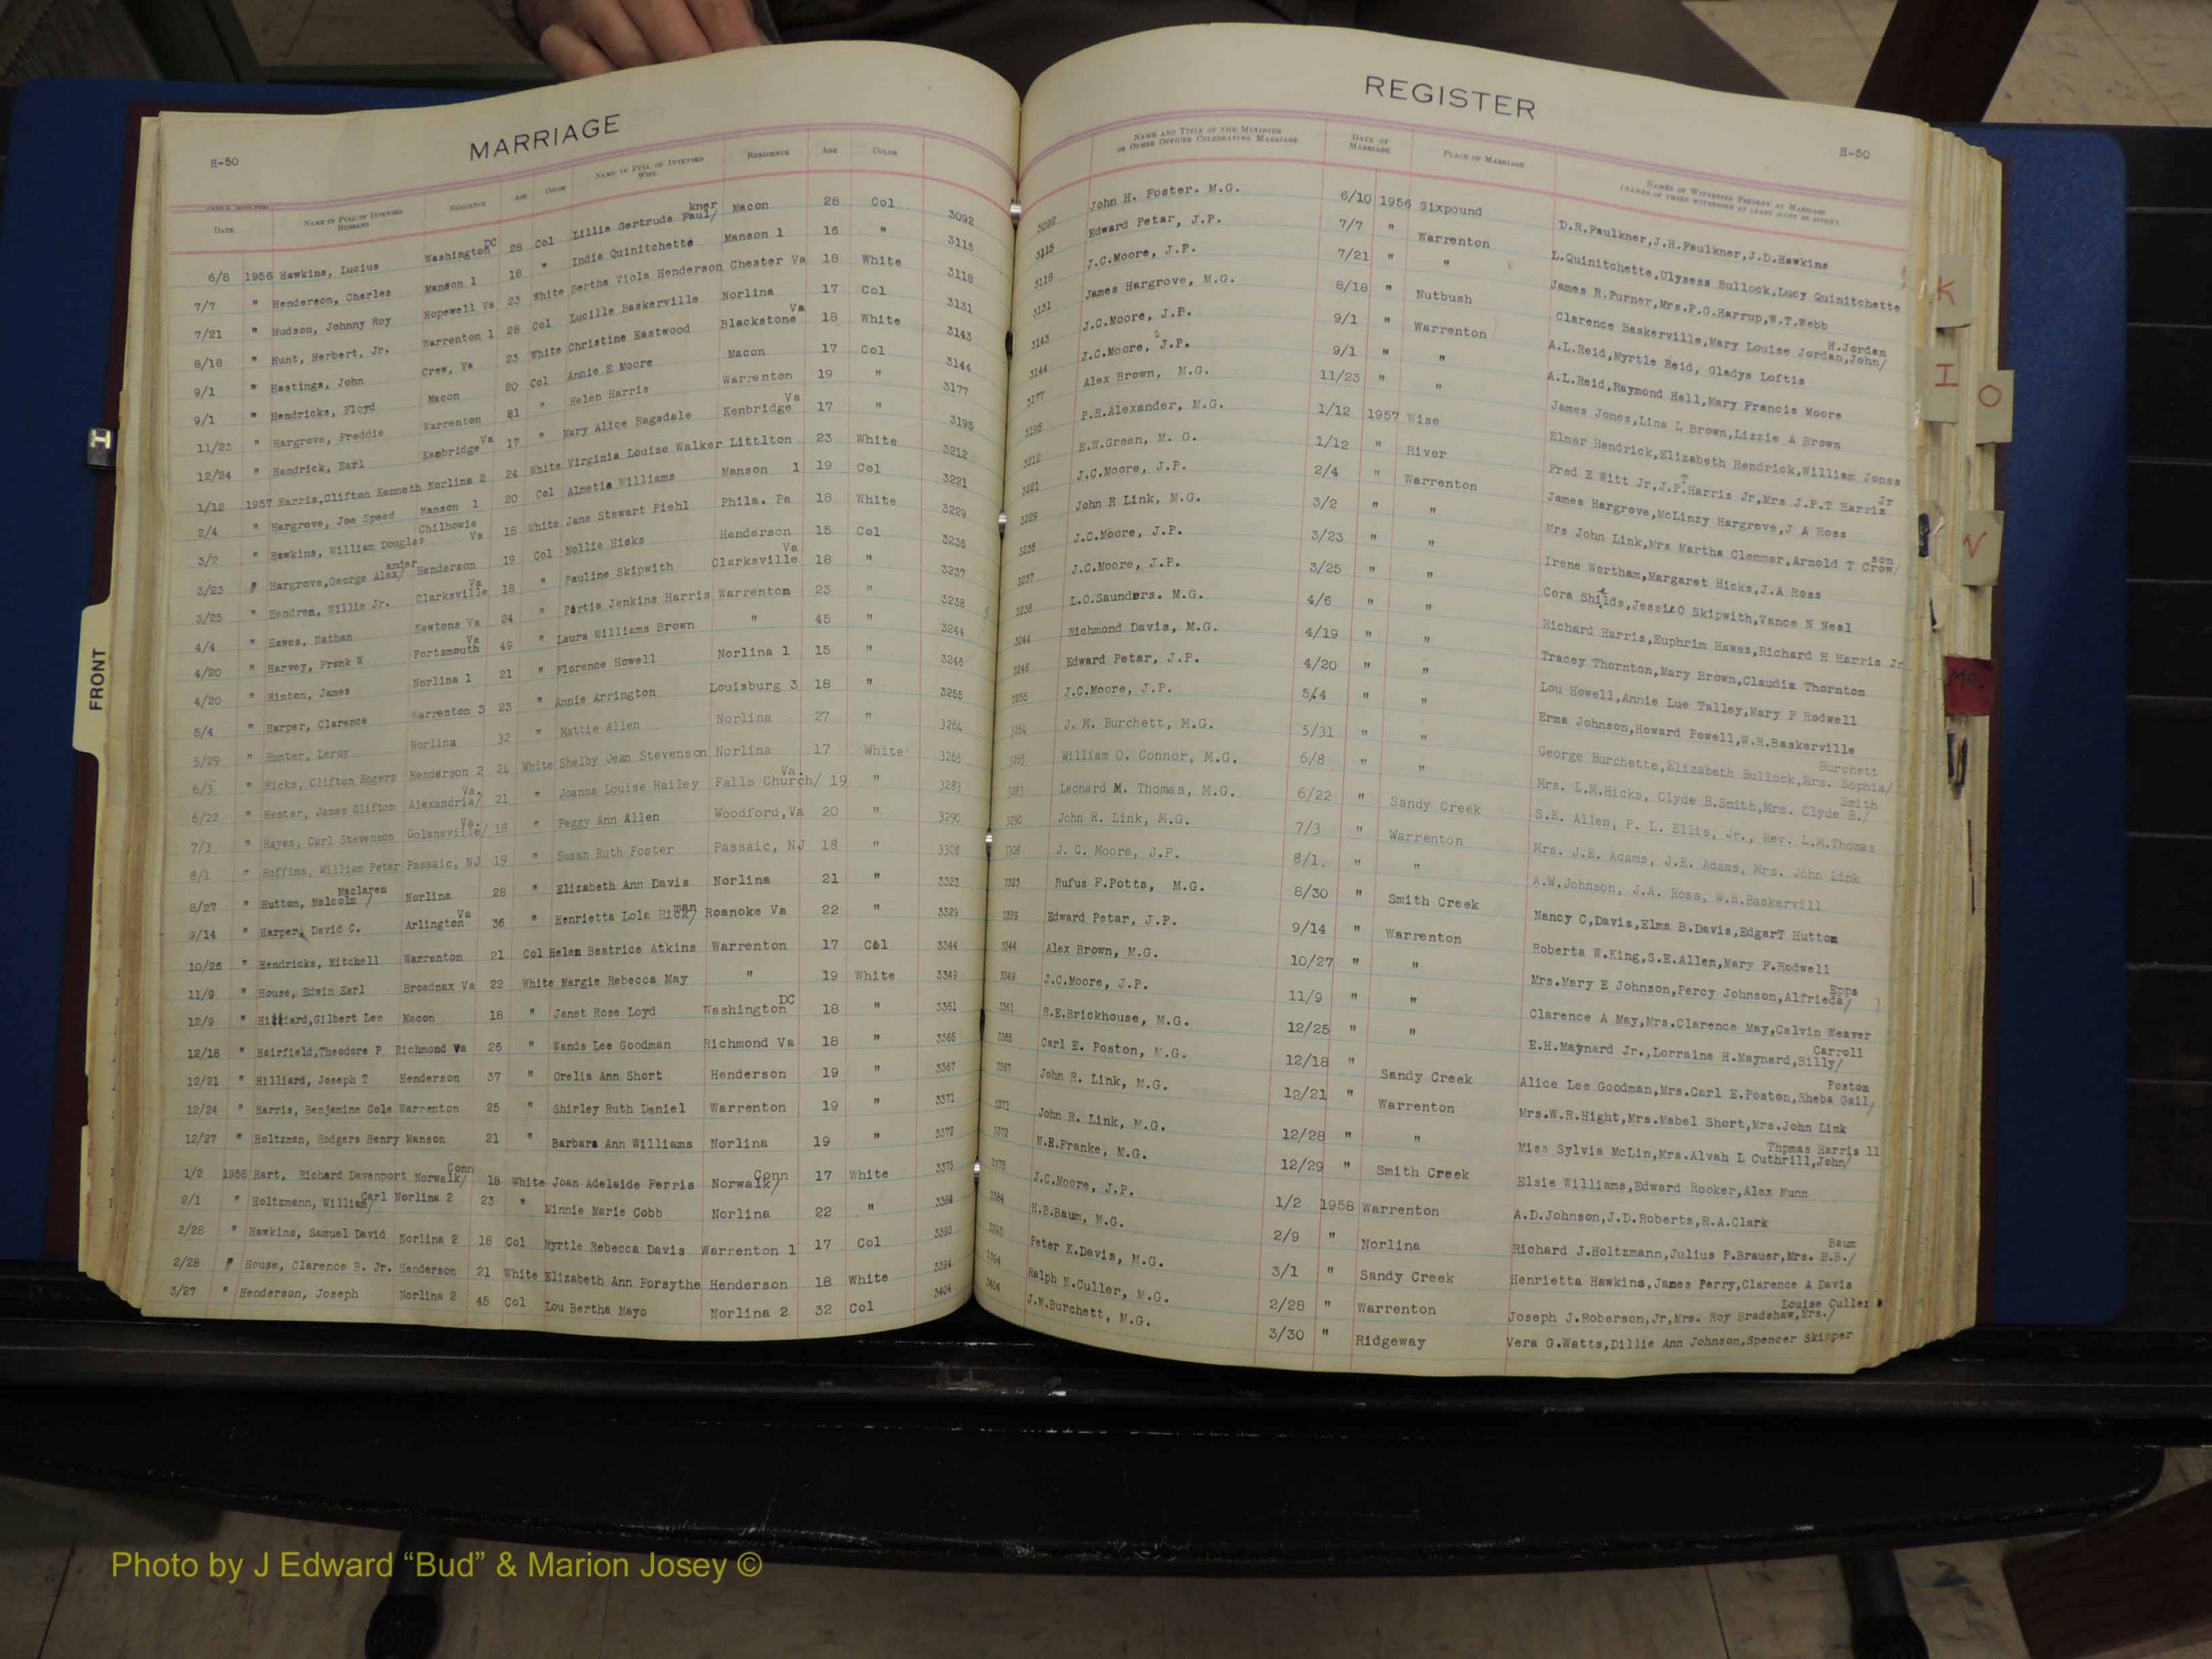 MARRIAGE
H-50
DATE NAME IN FULL OF INTENDED HUSBAND RESIDENCE AGE COLOR NAME IN FULL OF INTENDED WIFE RESIDENCE AGE COLOR
6/8 1956 Hawkins, Lucius Washington DC 28 Col Lillie Gertrude Faul/kner Macon 28 Col 3092
7/7 " Henderson, Charles Manson 1 18 " India Quinitchette Manson 1 16 " 3115
7/21 " Hudson, Johnny Roy Hopewell Va 23 White Bertha Viola Henderson Chester Va 18 White 3118
8/18 " Hunt, Herbert, Jr. Warrenton 1 28 Col Lucille Baskerville Norlina 17 Col 3131
9/1 " Hastings, John Crew, Va 23 White Christine Eastwood Blackstone Va 18 White 3143
9/1 " Hendricks, Floyd Macon 20 Col Annie E Moore Macon 17 Col 3144
11/23 " Hargrove, Freddie Warrenton 21 " Helen Harris Warrenton 19 " 3177
12/24 " Hendrick, Earl Kenbridge Va 17 " Mary Alice Ragsdale Kenbridge Va 17 " 3195
1/12 1957 Harris,Clifton Kenneth Norlina 2 24 White Virginia Louise Walker Littlton 23 White 3212
2/4 " Hargrove, Joe Speed Manson 1 20 Col Almetia Williams Manson 1 19 Col 3221
3/2 " Hawkins, William Douglas Chilhowie Va 18 White Jane Stewart Piehl Phila. Pa 18 White 3229
3/23 " Hargrove,George Alex/ander Henderson 19 Col Mollie Hicks Henderson 15 Col 3236
3/25 " Hendren, Willie Jr. Clarksville Va 18 " Pauline Skipwith Clarksville Va 18 " 3237
4/4 " Hawes, Nathan Newtons Va 24 " Portia Jenkins Harris Warrenton 23 " 3238
4/20 " Harvey, Frank W Portsmouth Va 49 " Laura Williams Brown " 45 " 3244
4/20 " Hinton, James Norlina 1 21 " Florence Howell Norlina 1 15 " 3246
5/4 " Harper, Clarence Warrenton 3 23 " Annie Arrington Louisburg 3 18 " 3255
5/29 " Hunter, Leroy Norlina 32 " Mattie Allen Norlina 27 " 3264
6/3 " Hicks, Clifton Rogers Henderson 2 24 White Shelby Jean Stevenson Norlina 17 White 3265
6/22 " Hester, James Clifton Alexandria/ Va. 21 " Joanna Louise Hailey Falls Church/ Va. 19 " 3283
7/3 " Hayes, Carl Stevenson Golansville/ Va. 18 " Peggy Ann Allen Woodford,Va 20 " 3290
8/1 " Hoffins, William Peter Passaic, NJ 19 " Susan Ruth Foster Passaic, NJ 18 " 3308
8/27 " Hutton, Malcolm / Maclaren Norlina 28 " Elizabeth Ann Davis Norlina 21 " 3323
9/14 " Harper, David C. Arlington Va 36 " Henrietta Lola Rick/man Roanoke Va 22 " 3329
10/26 " Hendricks, Mitchell Warrenton 21 Col Helen Beatrice Atkins Warrenton 17 Col 3344
11/9 " House, Edwin Earl Broadnax Va 22 White Margie Rebecca May " 19 White 3349
12/9 " Hilliard,Gilbert Lee Macon 18 " Janet Rose Loyd Washington DC 18 " 3361
12/18 " Hairfield,Theodore P Richmond Va 26 " Wanda Lee Goodman Richmond Va 18 " 3365
12/21 " Hilliard, Joseph T Henderson 37 " Orelia Ann Short Henderson 19 " 3367
12/24 " Harris, Benjamine Cole Warrenton 25 " Shirley Ruth Daniel Warrenton 19 " 3371
12/27 " Holtzman, Rodgers Henry Manson 21 " Barbara Ann Williams Norlina 19 " 3372
1/2 1958 Hart, Richard Davenport Norwalk/ Conn 18 White Joan Adelaide Ferris Norwalk/ Conn 17 White 3375
2/1 " Holtzmann, William/ Carl Norlina 2 23 " Minnie Marie Cobb Norlina 22 " 3384
2/28 " Hawkins, Samuel David Norlina 2 18 Col Myrtle Rebecca Davis Warrenton 1 17 Col 3393
2/28 " House, Clarence B. Jr. Henderson 21 White Elizabeth Ann Forsythe Henderson 18 White 3394
3/27 " Henderson, Joseph Norlina 2 45 Col Lou Bertha Mayo Norlina 2 32 Col 3404
REGISTER
H-50
NAME AND TITLE OF THE MINISTER OR OTHER OFFICER CELEBRATING MARRIAGE DATE OF MARRIAGE PLACE OF MARRIAGE NAMES OF WITNESSES PRESENT AT MARRIAGE (NAMES OF THREE WITNESSES AT LEAST MUST BE GIVEN)
3092 John H. Foster. M.G. 6/10 1956 Sixpound D.R.Faulkner,J.H.Faulkner,J.D.Hawkins
3115 Edward Petar, J.P. 7/7 " Warrenton L.Quinitchette,Ulysess Bullock,Lucy Quinitchette
3118 J.C.Moore, J.P. 7/21 " " James R.Purner,Mrs.P.G.Harrup,W.T.Webb
3131 James Hargrove, M.G. 8/18 " Nutbush Clarence Baskerville,Mary Louise Jordan,John/ H.Jordan
3143 J.C.Moore, J.P. 9/1 " Warrenton A.L.Reid,Myrtle Reid, Gladys Loftis
3144 J.C.Moore, J.P. 9/1 " " A.L.Reid,Raymond Hall,Mary Francis Moore
3177 Alex Brown, M.G. 11/23 " " James Jones,Lina L Brown,Lizzie A Brown
3195 P.R.Alexander, M.G. 1/12 1957 Wise Elmer Hendrick,Elizabeth Hendrick,William Jones
3212 E.W.Green, M. G. 1/12 " River Fred E Witt Jr,J.P.T Harris Jr,Mrs J.P.T Harris Jr
3221 J.C.Moore, J.P. 2/4 " Warrenton James Hargrove,McLinzy Hargrove,J A Ross
3229 John R Link, M.G. 3/2 " " Mrs John Link,Mrs Martha Clemmer,Arnold T Crow/son
3236 J.C.Moore, J.P. 3/23 " " Irene Wortham,Margaret Hicks,J.A Ross
3237 J.C.Moore, J.P. 3/25 " " Cora Shilds,Jessi O Skipwith,Vance N Neal
3238 L.O.Saunders. M.G. 4/6 " " Richard Harris,Euphrim Hawes,Richard H Harris Jr
3244 Richmond Davis, M.G. 4/19 " " Tracey Thornton,Mary Brown,Claudia Thornton
3246 Edward Petar, J.P. 4/20 " " Lou Howell,Annie Lue Talley,Mary F Rodwell
3255 J.C.Moore, J.P. 5/4 " " Erma Johnson,Howard Powell,W.R.Baskerville
3264 J. M. Burchett, M.G. 5/31 " " George Burchette,Elizabeth Bullock,Mrs. Sophia/ Burchett
3265 William O. Connor, M.G. 6/8 " " Mrs. L.M.Hicks, Clyde B.Smith,Mrs. Clyde B./ Smith
3283 Leonard M. Thomas, M.G. 6/22 " Sandy Creek S.E. Allen, P. L. Ellis, Jr., Rev. L.M.Thomas
3290 John R. Link, M.G. 7/3 " Warrenton Mrs. J.E. Adams, J.E. Adams, Mrs. John Link
3308 J. C. Moore, J.P. 8/1. " " A.W.Johnson, J.A. Ross, W.R.Baskervill
3323 Rufus F.Potts, M.G. 8/30 " Smith Creek Nancy C,Davis,Elma B.Davis,EdgarT Hutton
3329 Edward Petar, J.P. 9/14 " Warrenton Roberta W.King,S.E.Allen,Mary F.Rodwell
3344 Alex Brown, M.G. 10/27 " " Mrs.Mary E Johnson,Percy Johnson,Alfrieda/ Epps
3349 J.C.Moore, J.P. 11/9 " " Clarence A May,Mrs.Clarence May,Calvin Weaver
3361 R.E.Brickhouse, M.G. 12/25 " " E.H.Maynard Jr.,Lorraine H.Maynard,Billy/ Carroll
3365 Carl E. Poston, M.G. 12/18 " Sandy Creek Alice Lee Goodman,Mrs.Carl E.Poston,Rheba Gail/ Poston
3367 John R. Link, M.G. 12/21 " Warrenton Mrs.W.R.Hight,Mrs.Mabel Short,Mrs.John Link
3371 John R. Link, M.G. 12/28 " " Miss Sylvia McLin,Mrs.Alvah L Cuthrill,John/ Thomas Harris 11
3372 M.E.Franke, M.G. 12/29 " Smith Creek Elsie Williams,Edward Rooker,Alex Nunn
3375 J.C.Moore, J.P. 1/2 1958 Warrenton A.D.Johnson,J.D.Roberts,R.A.Clark
3384 H.B.Baum, M.G. 2/9 " Norlina Richard J.Holtzmann,Julius P.Brauer,Mrs. H.B./ Baum
3393 Peter K.Davis, M.G. 3/1 " Sandy Creek Henrietta Hawkins,James Perry,Clarence A Davis
3394 Ralph N.Culler, M.G. 2/28 " Warrenton Joseph J.Roberson,Jr,Mrs. Roy Bradshaw,Mrs./ Louise Culler
3404 J.M.Burchett, M.G. 3/30 " Ridgeway Vera G.Watts,Dillie Ann Johnson,Spencer Skipper
K
I
O
N
Mc.
H
FRONT
Photo by J Edward “Bud” & Marion Josey ©